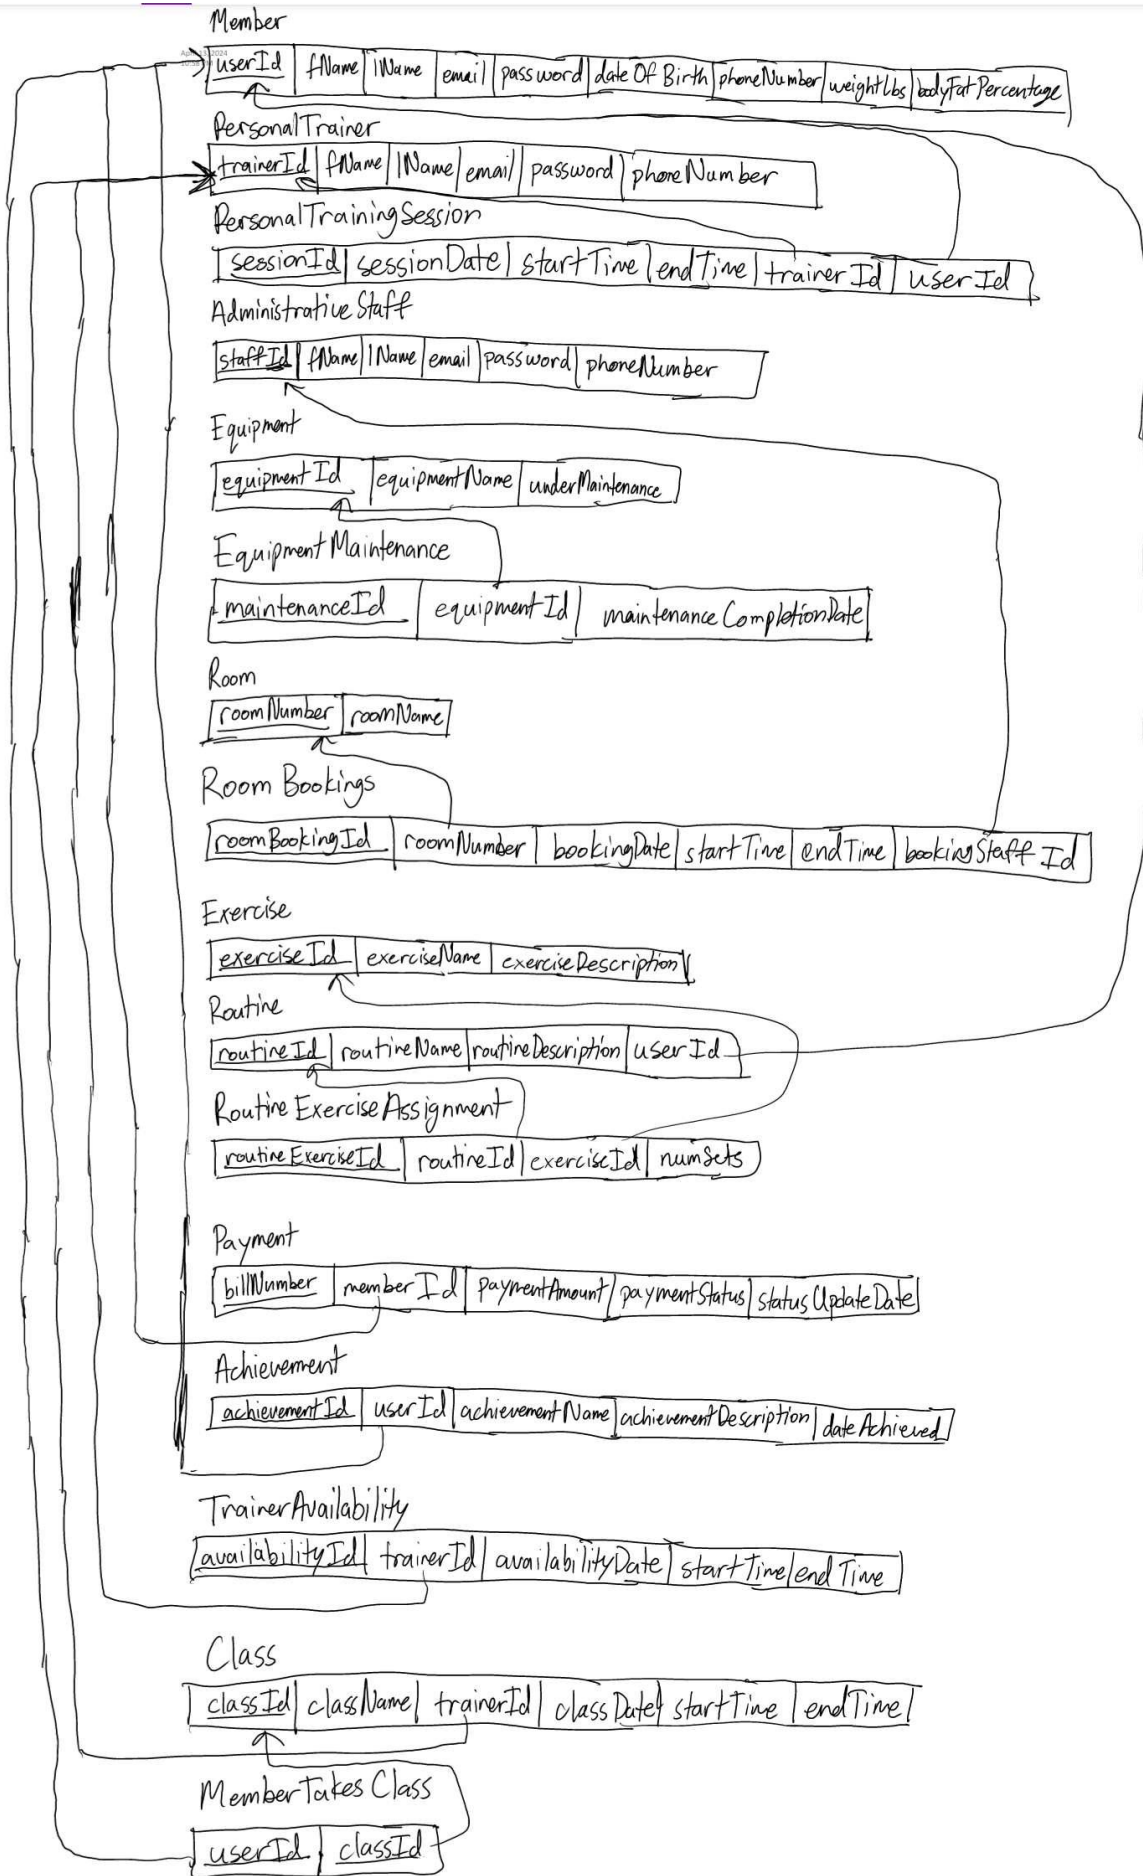 Member
userId fName lName email password dateOfBirth phoneNumber weightLbs bodyFatPercentage
PersonalTrainer
trainerId fName lName email password phoneNumber
PersonalTrainingSession
sessionId sessionDate startTime endTime trainerId userId
Administrative Staff
staffId fName lName email password phoneNumber
Equipment
equipmentId equipmentName underMaintenance
Equipment Maintenance
maintenanceId equipmentId maintenanceCompletionDate
Room
roomNumber roomName
Room Bookings
roomBookingId roomNumber bookingDate startTime endTime bookingStaffId
Exercise
exerciseId exerciseName exerciseDescription
Routine
routineId routineName routineDescription userId
Routine Exercise Assignment
routineExerciseId routineId exerciseId numSets
Payment
billNumber memberId paymentAmount paymentStatus statusUpdateDate
Achievement
achievementId userId achievementName achievementDescription dateAchieved
TrainerAvailability
availabilityId trainerId availabilityDate startTime endTime
Class
classId className trainerId classDate startTime endTime
MemberTakes Class
userId classId